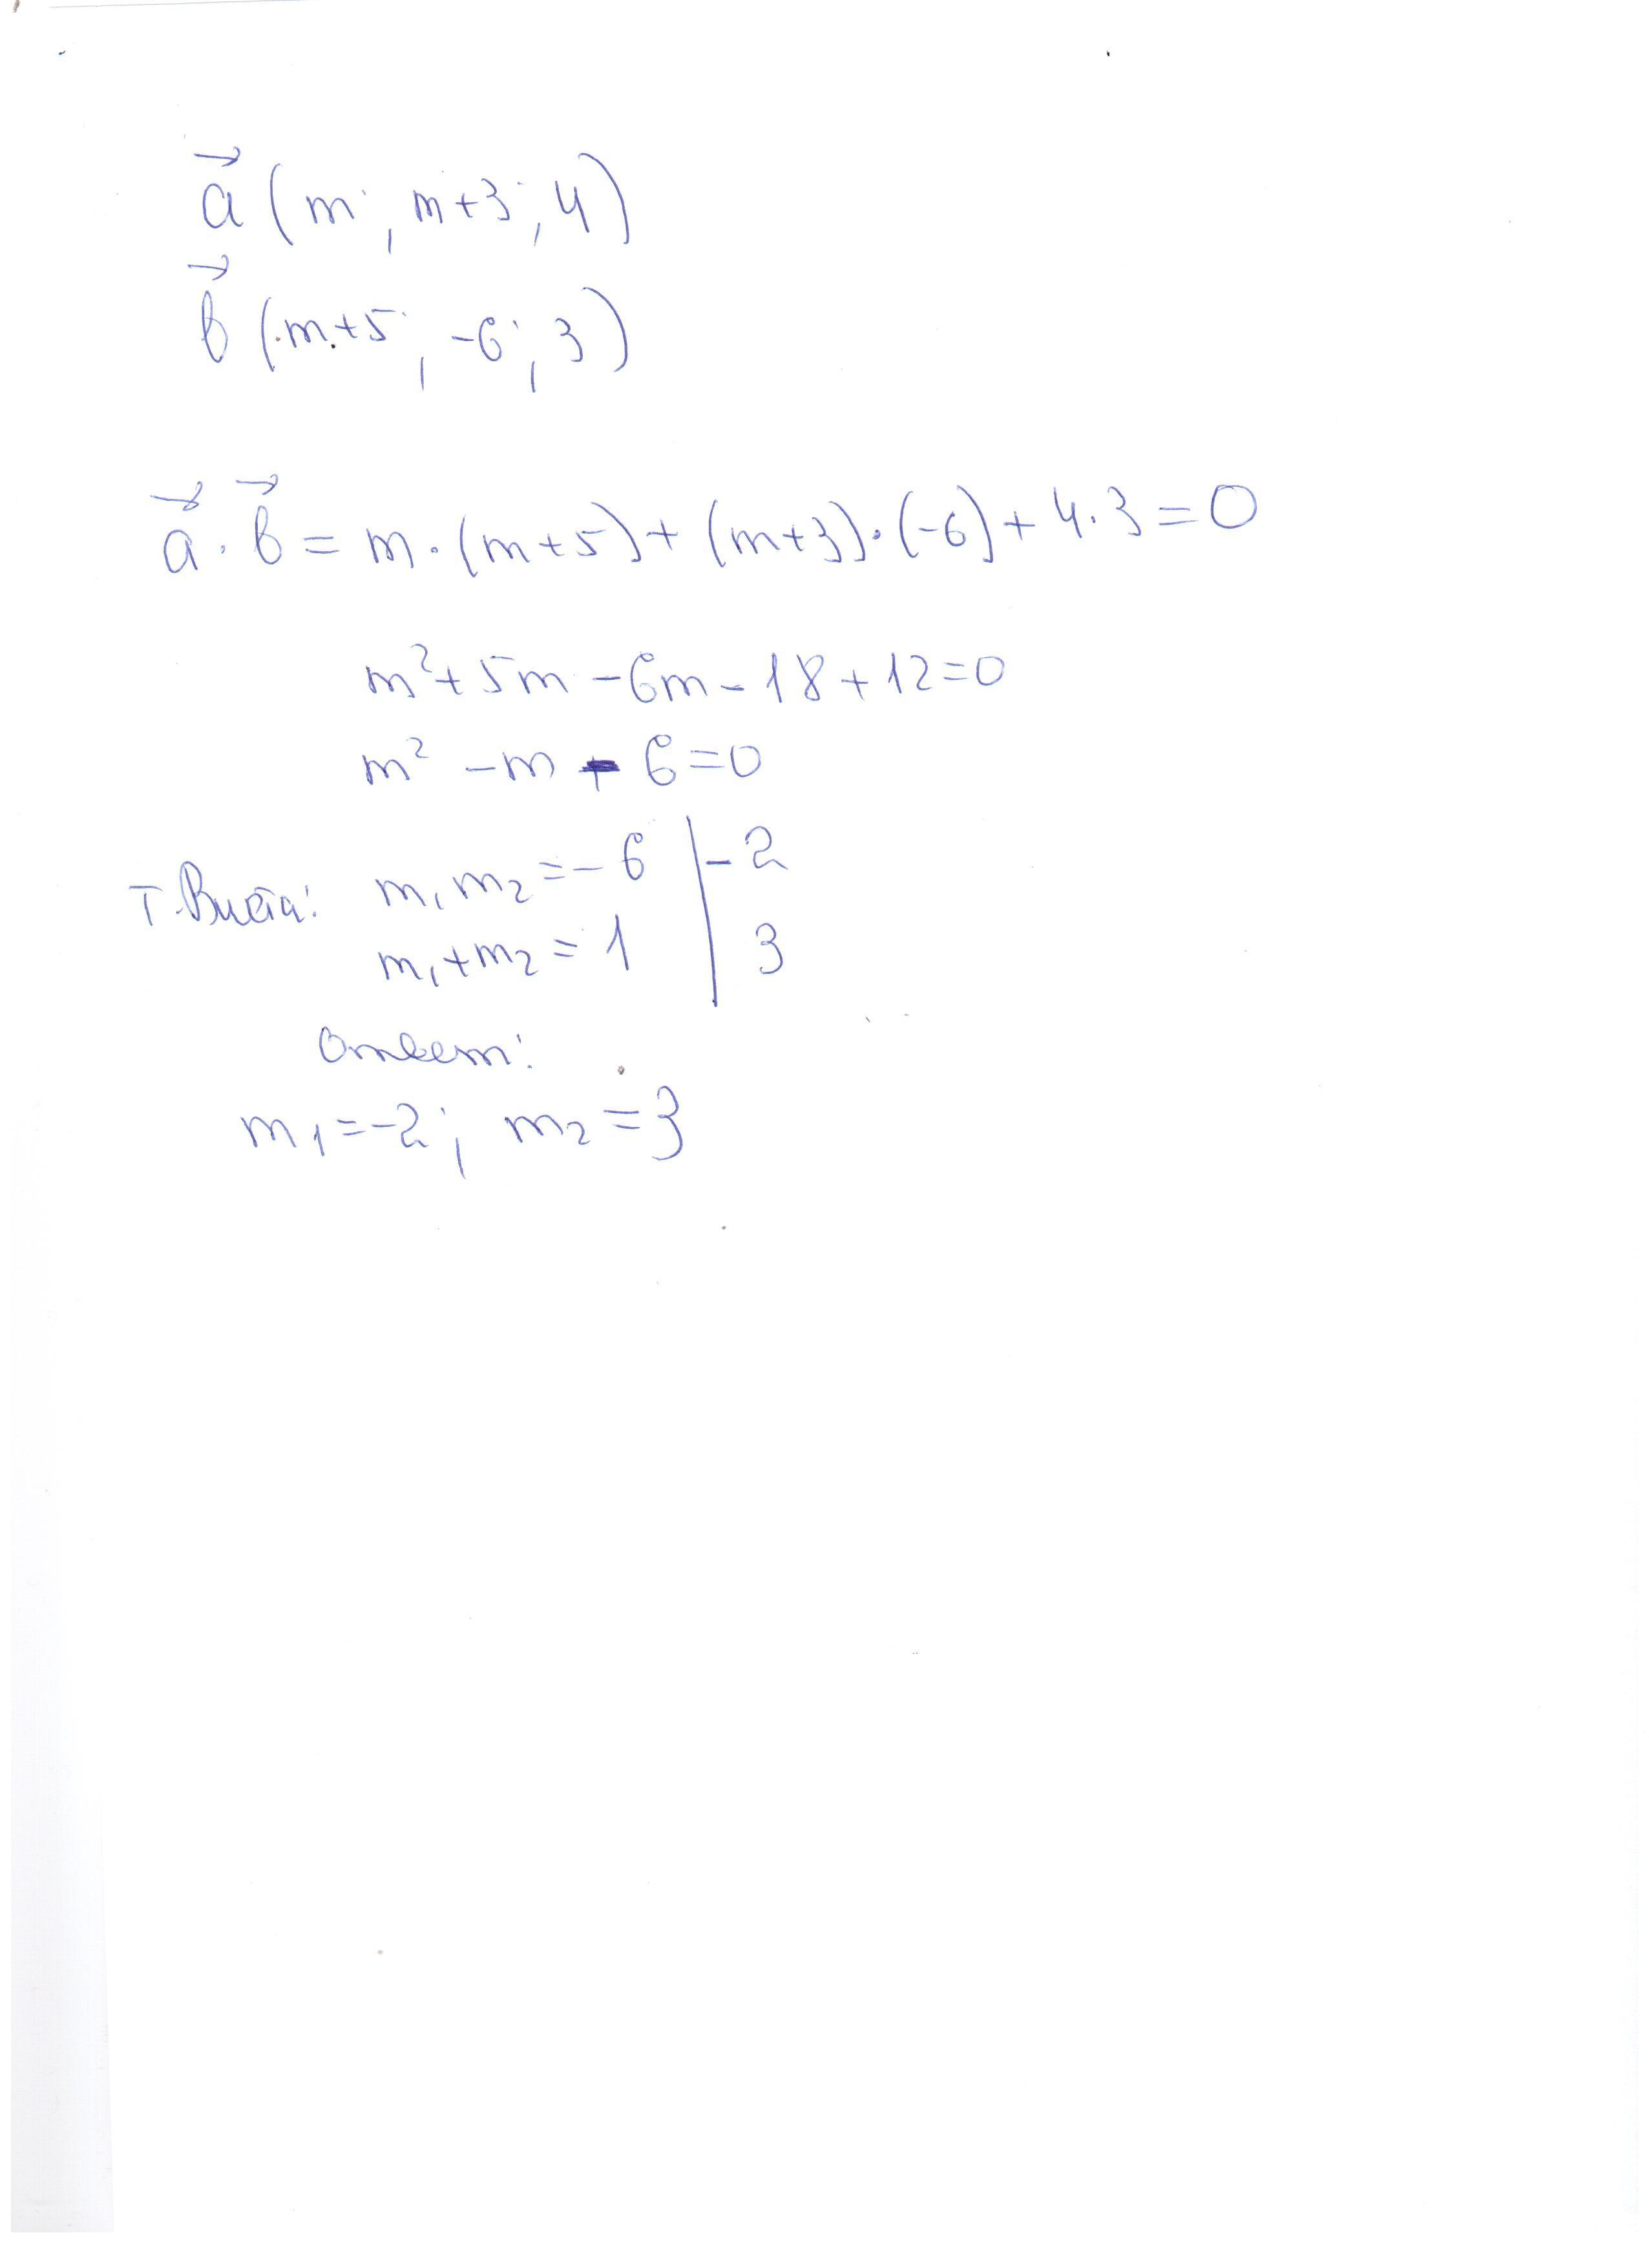 a⃗ (m; m+3; 4)
b⃗ (m+5; -6; 3)
a⃗ · b⃗ = m·(m+5)+(m+3)·(-6)+4·3=0
m²+5m-6m-18+12=0
m²-m-6=0
Т.Виета: m₁m₂=-6 | -2
m₁+m₂=1 | 3
Ответ:
m₁=-2; m₂=3